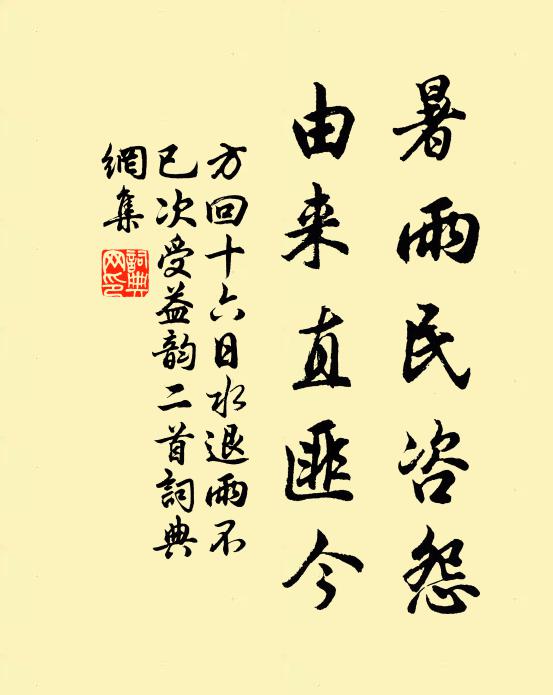 暑雨民咨怨
由来直匪今
方回十六日水退雨不
已次受益韵二首詞典
網集
詞典網印